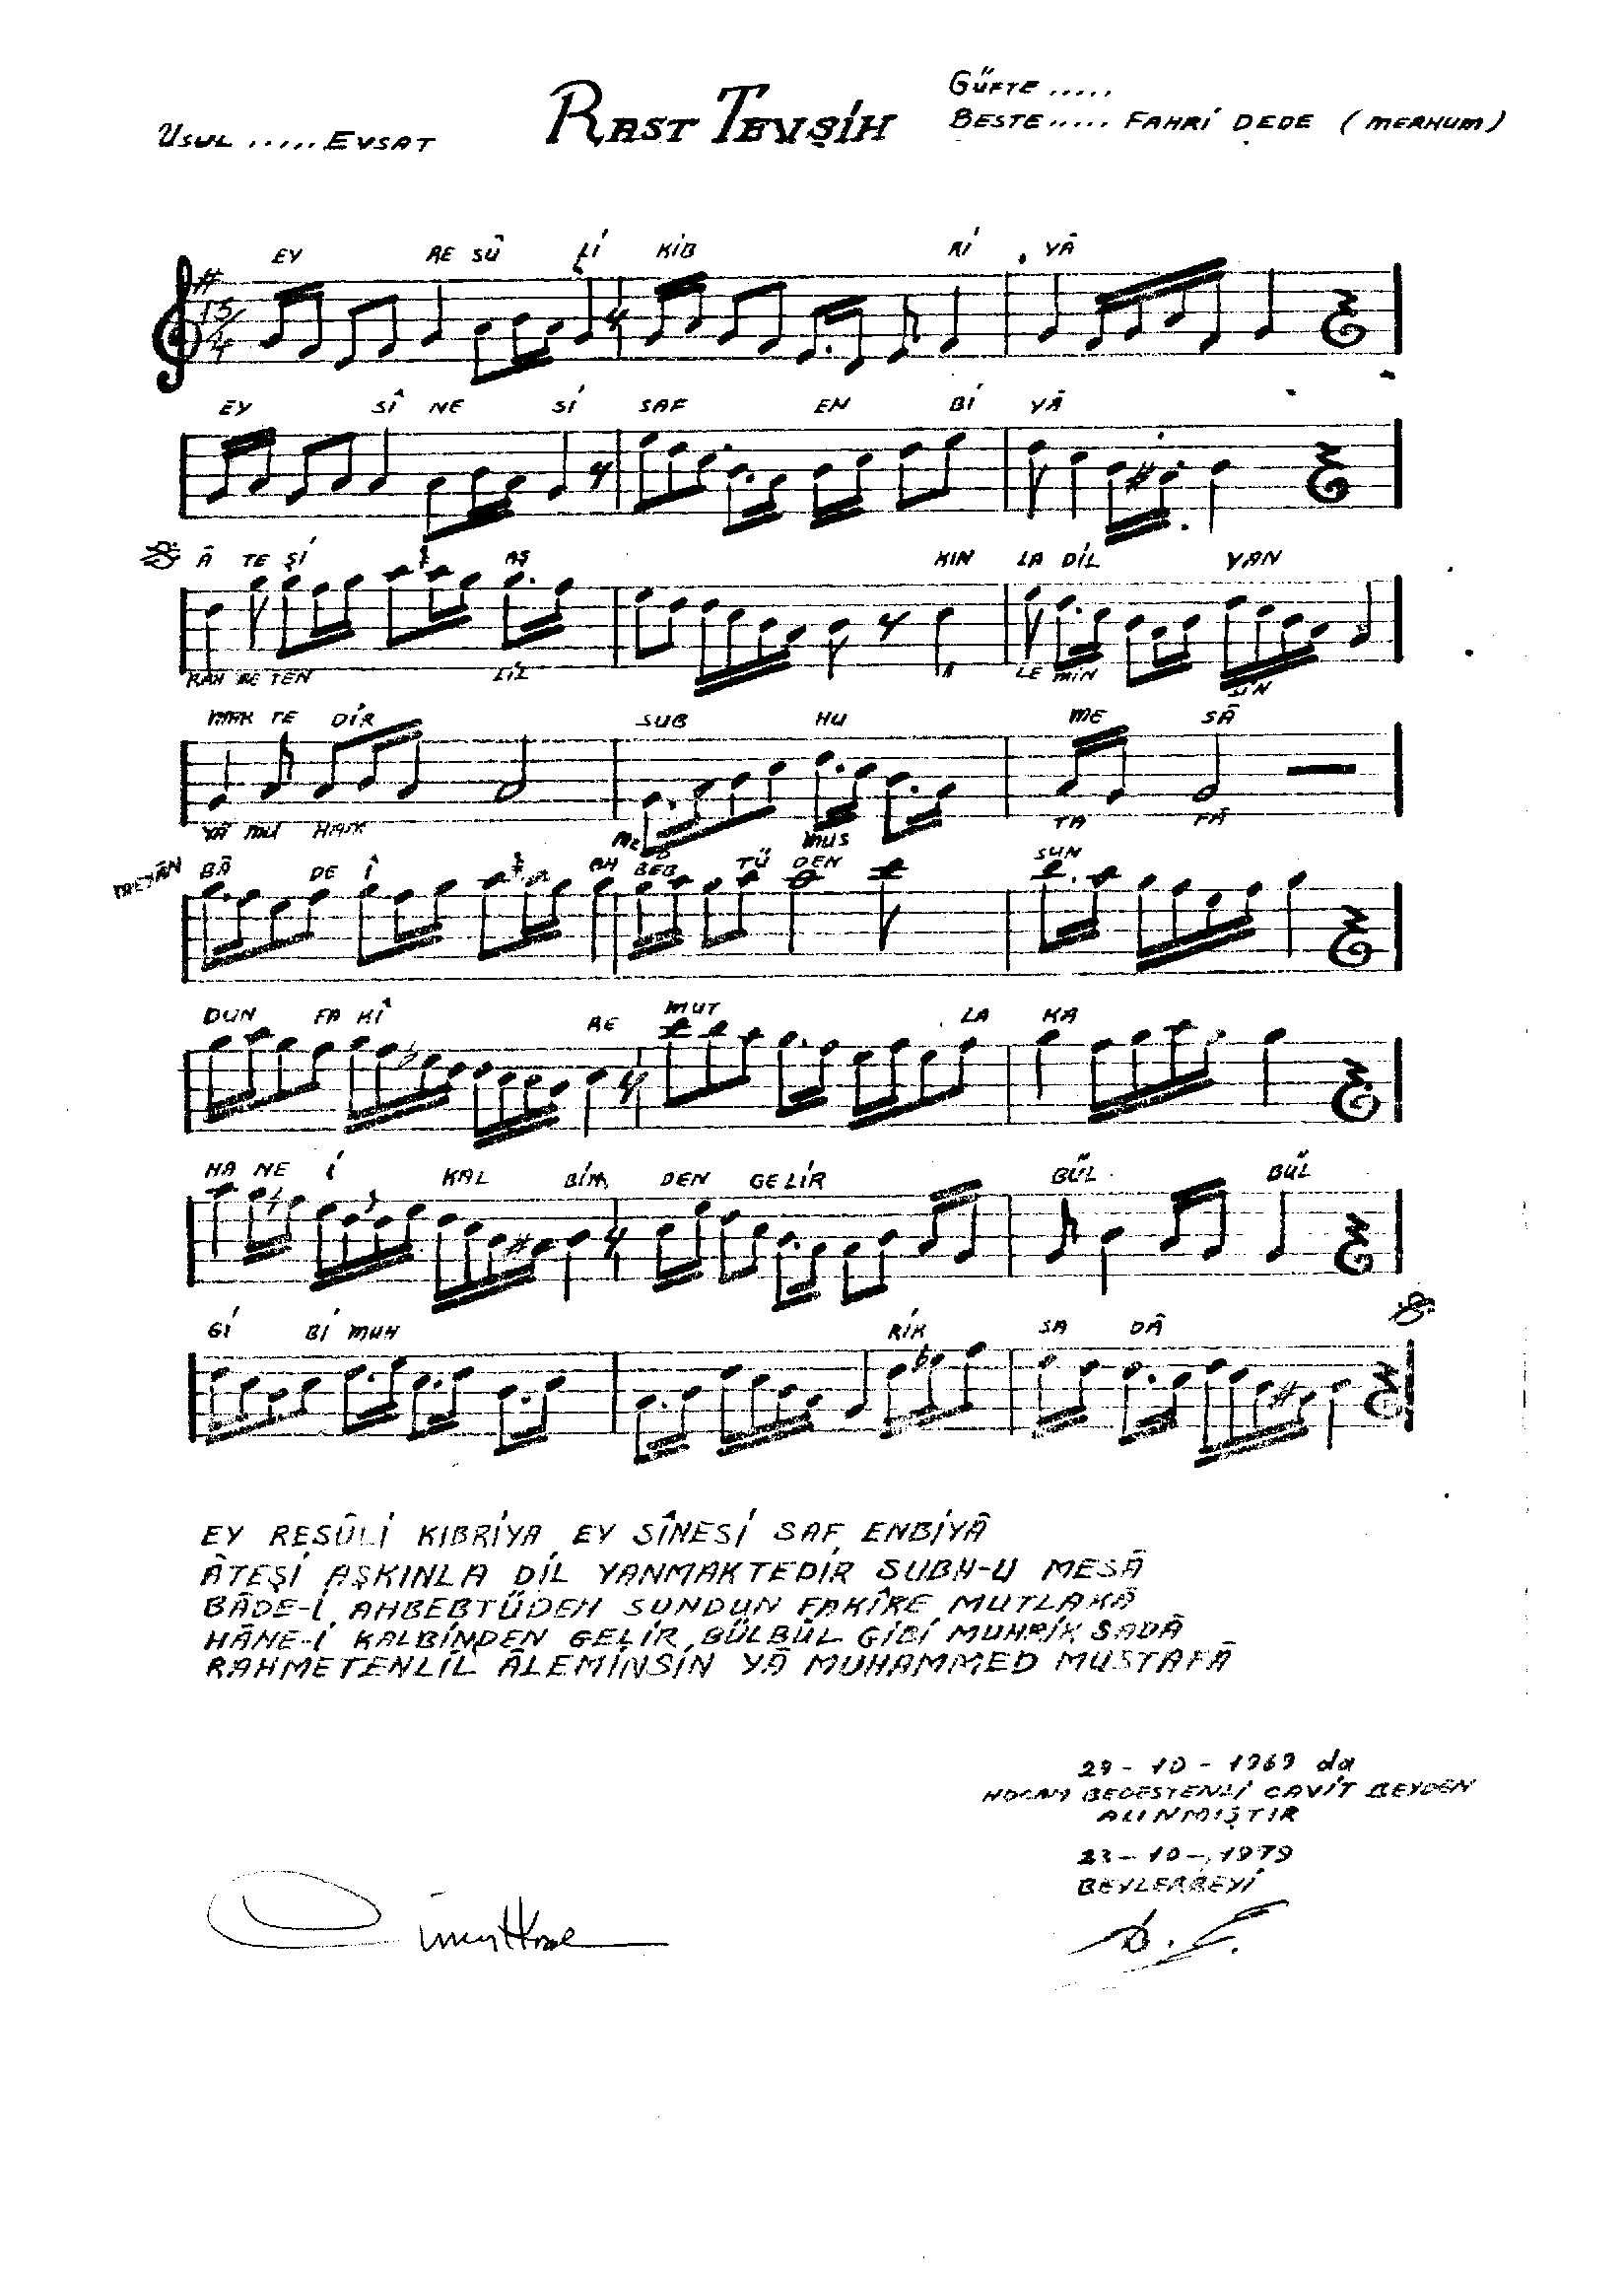 GÜFTE .....
USUL ..... EVSAT
RAST TEVŞİH
BESTE ..... FAHRİ DEDE (MERHUM)
EY RE SÛ Lİ KİB Rİ YÂ
15/4
EY SÎ NE Sİ SAF EN Bİ YÂ
Â TE Şİ AŞ KIN LA DİL YAN
RAH ME TEN LİL Â LE MİN SİN
MAK TE DİR SUB HU ME SÂ
YÂ MU HAM MED MUS TA FÂ
MEYÂN BÂ DE Î AH BEB TÜ DEN SUN
DUN FA KÎ RE MUT LA KA
HA NE İ KAL BİM DEN GE LİR BÜL BÜL
Gİ Bİ MUH RİK SA DÂ
EY RESÛLİ KIBRİYA EY SÎNESİ SAF ENBİYÂ
ÂTEŞİ AŞKINLA DİL YANMAKTEDİR SUBH-U MESÂ
BÂDE-İ AHBEBTÜDEN SUNDUN FAKÎRE MUTLAKÂ
HÂNE-İ KALBİNDEN GELİR BÜLBÜL GİBİ MUHRİK SADÂ
RAHMETENLİL ÂLEMİNSİN YÂ MUHAMMED MUSTAFÂ
29-10-1969 da
HOCAM BEDESTENLİ CAVİT BEYDEN
ALINMIŞTIR
23-10-1979
BEYLERBEYİ